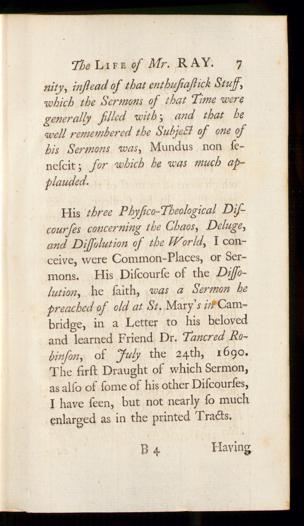 The LIFE of Mr. RAY. 7
nity, inſtead of that enthuſiaſtick Stuff,
which the Sermons of that Time were
generally filled with; and that he
well remembered the Subject of one of
his Sermons was, Mundus non ſe-
neſcit; for which he was much ap-
plauded.
His three Phyſico-Theological Diſ-
courſes concerning the Chaos, Deluge,
and Diſſolution of the World, I con-
ceive, were Common-Places, or Ser-
mons. His Diſcourſe of the Diſſo-
lution, he ſaith, was a Sermon he
preached of old at St. Mary's in Cam-
bridge, in a Letter to his beloved
and learned Friend Dr. Tancred Ro-
binſon, of July the 24th, 1690.
The firſt Draught of which Sermon,
as alſo of ſome of his other Diſcourſes,
I have ſeen, but not nearly ſo much
enlarged as in the printed Tracts.
B 4 Having